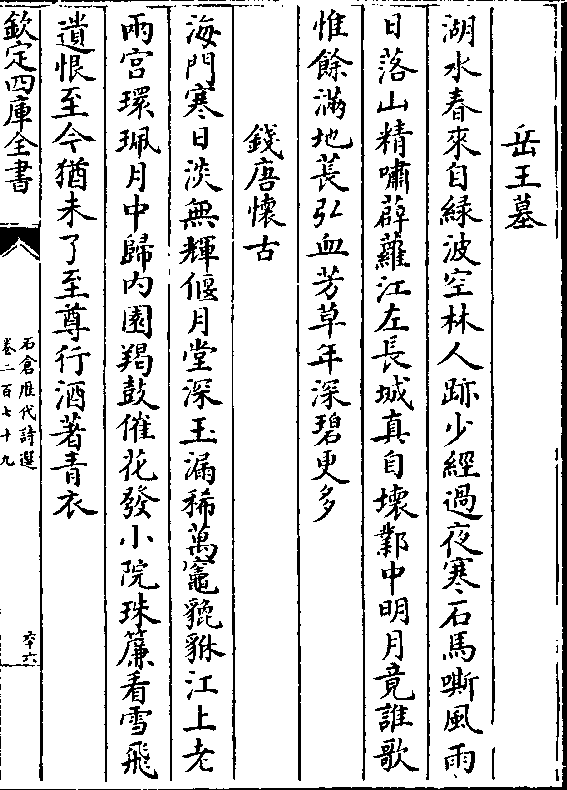 岳王墓
湖水春來自緑波空林人跡少經過夜寒石馬嘶風雨
日落山精嘯薜蘿江左長城真自壞鄴中明月竟誰歌
惟餘滿地萇弘血芳草年深碧更多
錢唐懷古
海門寒日淡無輝偃月堂深玉漏稀萬竈貔貅江上老
兩宫環珮月中歸内園羯鼓催花發小院珠簾看雪飛
遺恨至今猶未了至尊行酒著青衣
欽定四庫全書
石倉歴代詩選
卷二百七十九
六十六